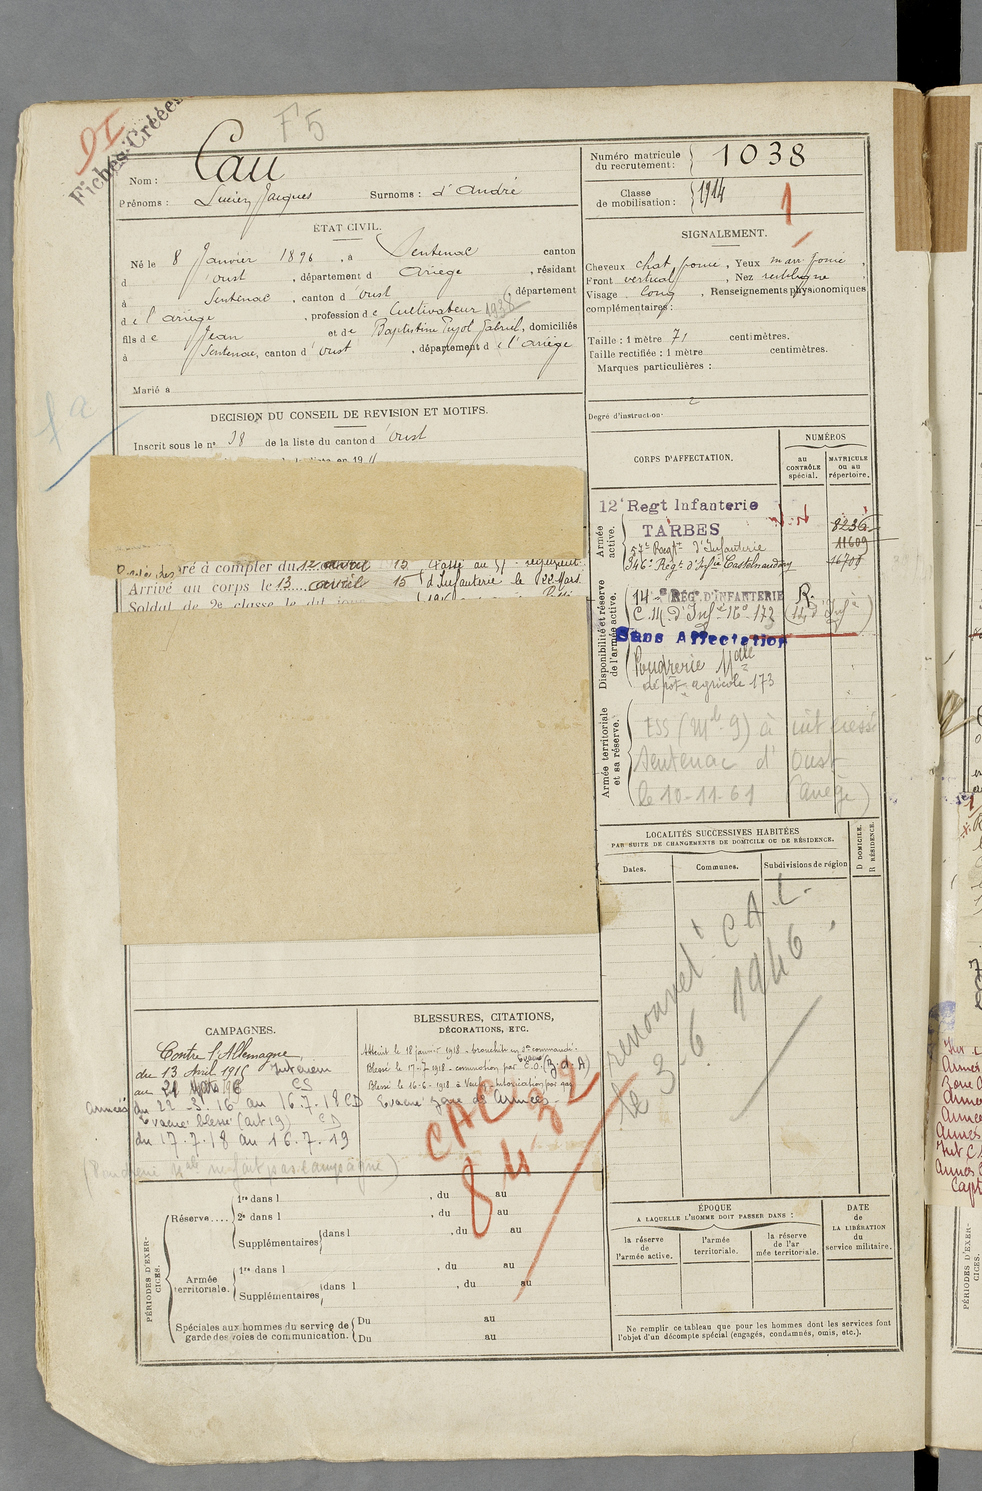 DI
Fiches Créées
F5
Nom : Cau
Prénoms : Lucien Jacques Surnoms : d'André
Numéro matricule du recrutement : 1038
Classe de mobilisation : 1914
1
ÉTAT CIVIL.
Né le 8 Janvier 1896, à Sentenac canton
d'Oust, département d Ariège, résidant
à Sentenac, canton d'Oust, département
de l'ariège, profession de Cultivateur 1938
fils de Jean et de Baptistine Pujol Gabriel, domiciliés
à Sentenac, canton d'Oust, département de l'ariège
Marié à
SIGNALEMENT.
Cheveux chat foncé, Yeux marr foncé,
Front vertical, Nez rectiligne,
Visage long, Renseignements physionomiques
complémentaires :
Taille : 1 mètre 71 centimètres.
Taille rectifiée : 1 mètre centimètres.
Marques particulières :
Degré d'instruction 2
DECISION DU CONSEIL DE REVISION ET MOTIFS.
Inscrit sous le n° 38 de la liste du canton d'Oust
ré à compter du 12 avril 15
Passé au 57e régiment
Arrivé au corps le 13 avril 15
d'Infanterie le 22 Mars
Soldat de 2e classe le dit jour
CORPS D'AFFECTATION.
NUMÉROS
au CONTRÔLE spécial.
MATRICULE ou au répertoire.
Armée active.
12e Regt Infanterie
TARBES
8236
57e Regt d'Infanterie 11609
346e Regt d'Infie Castelnaudary 16708
Disponibilité et réserve de l'armée active.
14e RÉG. D'INFANTERIE R.
C.M. d'Infie 16e 173 (14 d'Infie)
Sans Affectation
Poudrerie Nale
dépôt agricole 173
Armée territoriale et sa réserve.
ESS (Mle 9) à intéressé
Sentenac d'Oust
le 10-11-61 (Ariège)
LOCALITÉS SUCCESSIVES HABITÉES
PAR SUITE DE CHANGEMENTS DE DOMICILE OU DE RÉSIDENCE.
Dates.
Communes.
Subdivisions de région
D DOMICILE.
R RÉSIDENCE.
renouvelt C.A.C.
le 3.6.1946
CAMPAGNES.
Contre l'Allemagne
du 13 Avril 1915 Intérieur
au 21 Mars 16 CS
Armées du 22-3-16 au 16.7.18 CD
Evacué blessé (art 19) CD
du 17.7.18 au 16.7.19
(Poudrerie Nale ne fait pas campagne)
BLESSURES, CITATIONS,
DÉCORATIONS, ETC.
Atteint le 18 janvier 1918 - bronchite en
Blessé le 17-7-1918 - commotion par E.O. Evacué (Z.d.A)
Blessé le 16-6-1918 à - intoxication par gaz
Evacué zone des Armées -
CAC 32
84
PÉRIODES D'EXERCICES.
Réserve....
1re dans l , du au
2e dans l , du au
Supplémentaires dans l , du au
Armée territoriale.
1re dans l , du au
Supplémentaires dans l , du au
Spéciales aux hommes du service de garde des voies de communication.
Du au
Du au
ÉPOQUE
A LAQUELLE L'HOMME DOIT PASSER DANS :
la réserve de l'armée active.
l'armée territoriale.
la réserve de l'armée territoriale.
DATE de LA LIBÉRATION du service militaire.
Ne remplir ce tableau que pour les hommes dont les services font
l'objet d'un décompte spécial (engagés, condamnés, omis, etc.).
PÉRIODES D'EXERCICES.